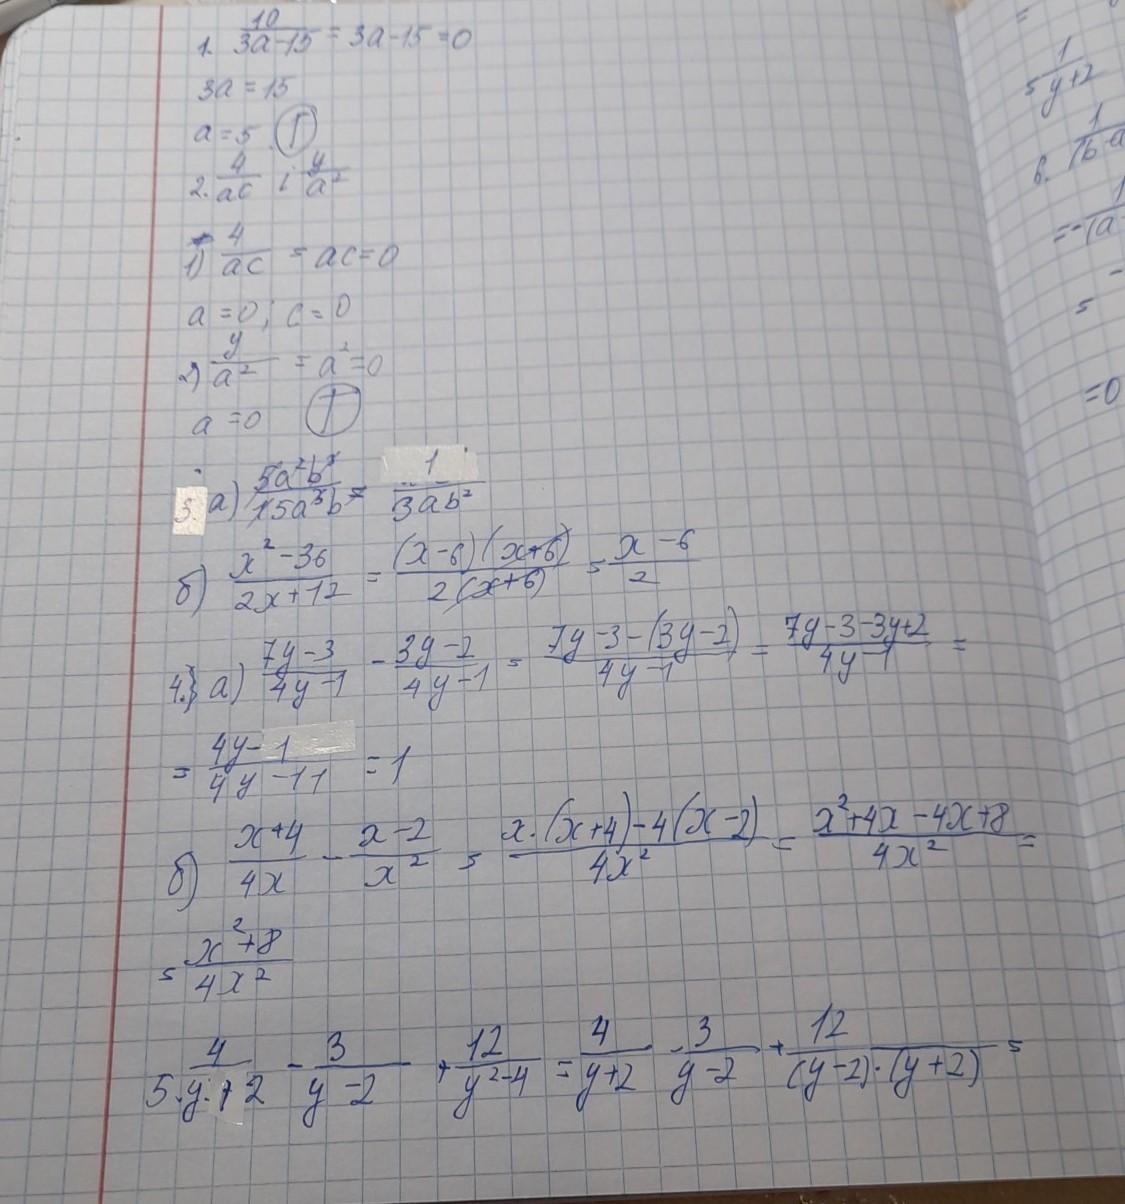 1. 10/(3a-15) = 3a-15 = 0
3a = 15
a = 5
2. 4/(ac) i y/(a²)
1) 4/(ac) = ac = 0
a = 0; c = 0
2) y/(a²) = a² = 0
a = 0
3. а) = 1/(3ab²)
б) (x²-36)/(2x+12) = ((x-6)(x+6))/(2(x+6)) = (x-6)/2
4. а) (7y-3)/(4y-1) - (3y-2)/(4y-1) = (7y-3-(3y-2))/(4y-1) = (7y-3-3y+2)/(4y-1) =
= (4y-1)/(4y-11) = 1
б) (x+4)/(4x) - (x-2)/(x²) = (x·(x+4)-4(x-2))/(4x²) = (x²+4x-4x+8)/(4x²) =
= (x²+8)/(4x²)
5. 4/(y+2) - 3/(y-2) + 12/(y²-4) = 4/(y+2) - 3/(y-2) + 12/((y-2)·(y+2)) =
=
= 1/(y+2)
=
= 0